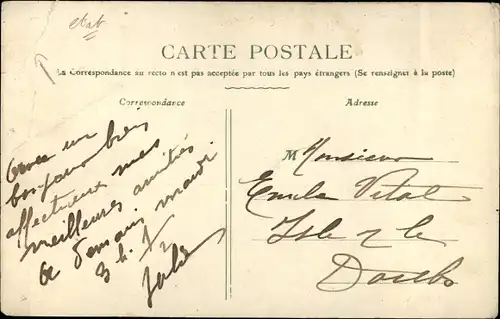 CARTE POSTALE
La Correspondance au recto n'est pas acceptée par tous les pays étrangers (Se renseigner à la poste)
Correspondance
Adresse
bonjour bien
affectueux mes
meilleures amitiés
demain mardi
3 h. 1/2
M Monsieur
Emile Vital
Isle s le
Doubs